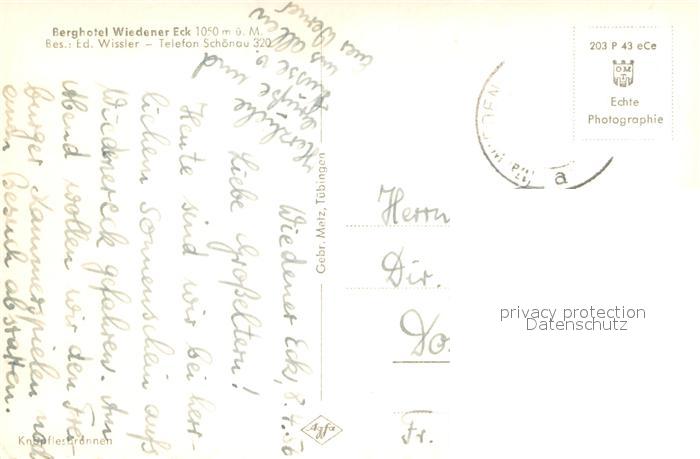 Berghotel Wiedener Eck 1050 m ü. M.
Bes.: Ed. Wissler – Telefon Schönau 320
Wiedener Eck, 8.4.56
Liebe Großeltern!
Heute sind wir bei herr-
lichem Sonnenschein aufs
Wiedenereck gefahren. Am
Abend wollen wir den Frei-
burger Kammerspielen noch
einen Besuch abstatten.
Herzliche
Grüße und
Küsse v.
uns allen
Knöpflesbrunnen
Gebr. Metz, Tübingen
Agfa
203 P 43 eCe
Echte
Photographie
a
Herrn
Dir.
Do
Fr.
privacy protection
Datenschutz